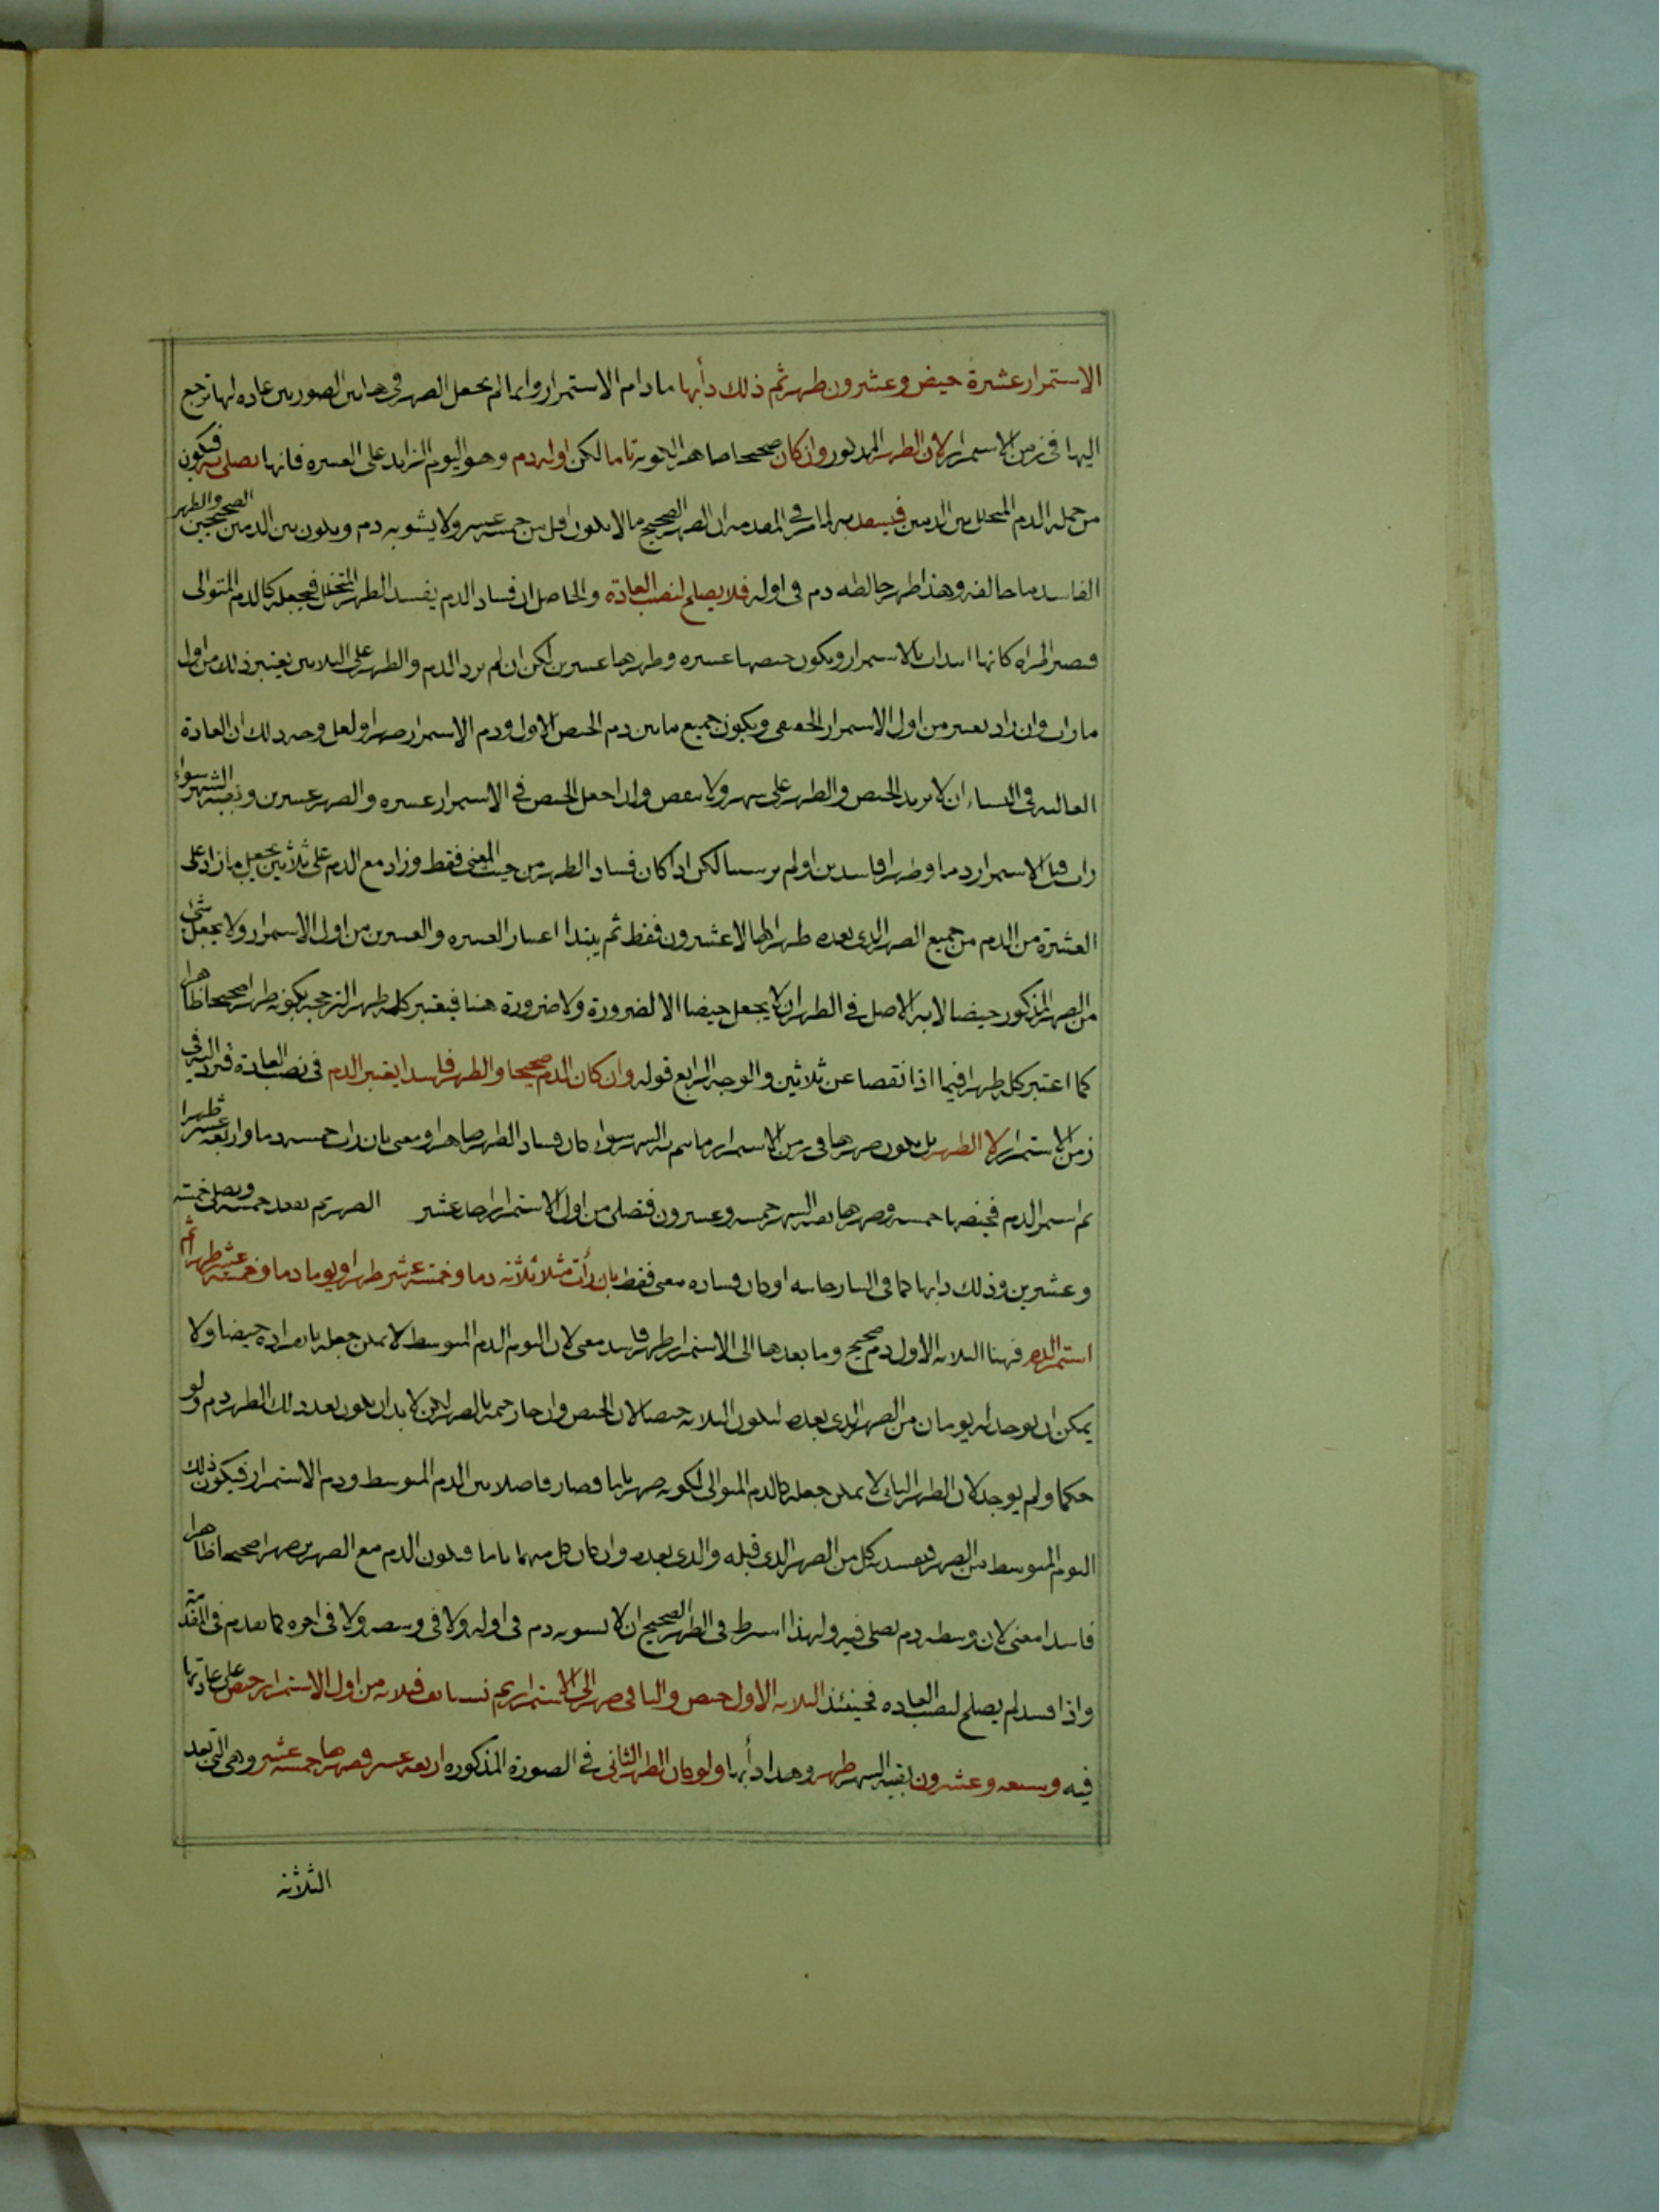 الاستمرار عشرة حيض وعشرون طهر ثم ذلك دأبها ما دام الاستمرار وانما لم يجعل الطهر في هاتين الصورتين عادة لها ترجع
اليها في زمن الاستمرار لان الطهر المذكور وان كان صحيحا ظاهرا لكونه تاما لكن اوله دم وهو اليوم الزايد على العشرة فانها تصلي به فيكون
من جملة الدم المتخلل بين الدمين فيفسد به لما مر في المقدمة ان الطهر الصحيح ما لا يكون اقل من خمسة عشر ولا يشوبه دم ويكون بين الدمين الصحيحين والطهر
الفاسد ما خالفه وهذا طهر خالطه دم في اوله فلا يصلح لنصب العادة والحاصل ان فساد الدم يفسد الطهر المتخلل فيجعله كالدم المتوالي
فتصير المراة كانها ابتدات بالاستمرار ويكون حيضها عشرة وطهرها عشرين لكن ان لم يزد الدم والطهر على الثلاثين يعتبر ذلك من اول
ما رات وان زاد يعتبر من اول الاستمرار الحقيقي ويكون جميع ما بين دم الحيض الاول ودم الاستمرار طهرا ولعل وجه ذلك ان العادة
الغالبة في النساء ان لا يزيد الحيض والطهر على شهر ولا ينقص ولذا جعل الحيض في الاستمرار عشرة والطهر عشرين وبقية الشهر سواء
رات قبل الاستمرار دما وطهرا فاسدين او لم تر شيئا لكن اذا كان فساد الطهر من حيث المعنى فقط وزاد مع الدم على ثلاثين يجعل ما زاد على
العشرة من الدم مع جميع الطهر الذي بعده طهرا لها لا عشرون فقط ثم يبتدا اعتبار العشرة والعشرين من اول الاستمرار ولا يجعل شئ
من الطهر المذكور حيضا لانه الاصل في الطهر ان لا يجعل حيضا الا لضرورة ولا ضرورة هنا فيعتبر كله طهر لترجحه بكونه طهرا صحيحا ظاهرا
كما اعتبر كله طهرا فيما اذا نقصا عن ثلاثين والوجه الرابع قوله وان كان الدم صحيحا والطهر فاسدا يعتبر الدم في نصب العادة فترد اليه في
زمن الاستمرار لا الطهر بل يكون طهرها في زمن الاستمرار ما يتم به الشهر سواء كان فساد الطهر ظاهرا ومعنى بان رات خمسة دما واربعة عشر طهرا
ثم استمر الدم فحيضها خمسة وطهرها بقية الشهر خمسة وعشرون فتصلي من اول الاستمرار احد عشر الطهر ثم تقعد خمسة وتصلي خمسة
وعشرين وذلك دابها كما في التتارخانية او كان فساده معنى فقط بان رأت مثلا ثلاثة دما وخمسة عشر طهرا ويوما دما وخمسة عشر طهرا ثم
استمر الدم فهنا الثلاثة الاول دم صحيح وما بعدها الى الاستمرار طهر فاسد معنى لان اليوم الدم المتوسط لا يمكن جعله بانفراده حيضا ولا
يمكن ان يوخذ له يومان من الطهر الذي بعده لتكون الثلاثة حيضا لان الحيض وان جاز ختمه بالطهر لكن لا بد ان يكون بعد ذلك الطهر دم ولو
حكما ولم يوجد لان الطهر الثاني لا يمكن جعله كالدم المتوالي لكونه طهر تاما فصار فاصلا بين الدم المتوسط ودم الاستمرار فيكون ذلك
اليوم المتوسط من الطهر فيفسد به كل من الطهر الذي قبله والذي بعده وان كان كل منهما تاما فيكون الدم مع الطهرين طهرا صحيحا ظاهرا
فاسدا معنى لان وسطه دم تصلي فيه ولهذا اشترط في الطهر الصحيح ان لا يشوبه دم في اوله ولا في وسطه ولا في اخره كما تقدم في المقدمة
واذا فسد لم يصلح لنصب العادة فحينئذ الثلاثة الاول حيض والباقي طهر الى الاستمرار ثم تستانف فثلاثة من اول الاستمرار حيض على عادتها
فيه وسبعة وعشرون بقية الشهر طهر وهذا دأبها ولو كان الطهر الثاني في الصورة المذكورة اربعة عشر فطهرها خمسة عشر وهي التي بعد
الثلاثة